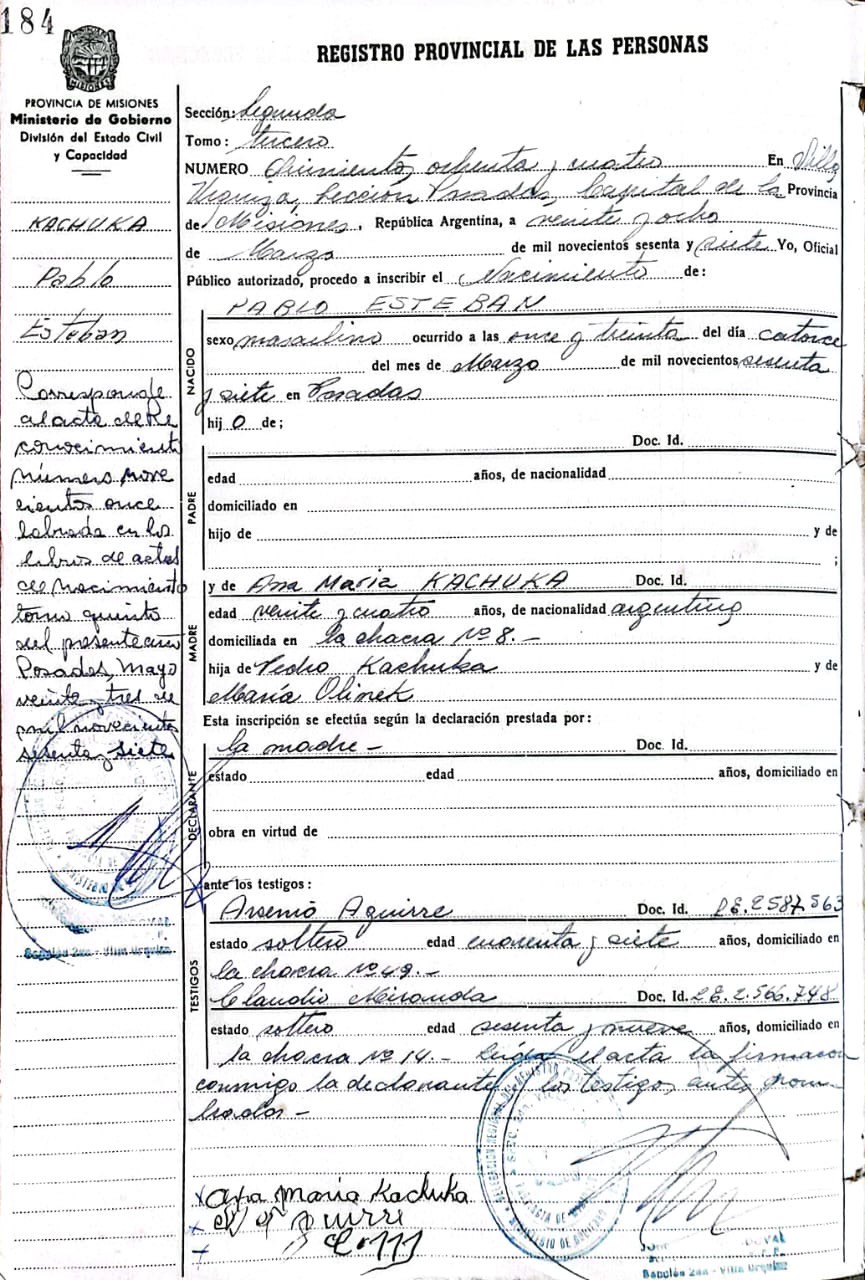 184
REGISTRO PROVINCIAL DE LAS PERSONAS
PROVINCIA DE MISIONES
Ministerio de Gobierno
División del Estado Civil
y Capacidad
KACHUKA
Pablo
Esteban
Corresponde
al acta de Re
conocimiento
número nove
cientos once
labrada en los
libros de actas
de nacimiento
tomo quinto
del presente año
Posadas, Mayo
veinte y tres de
mil novecientos
sesenta y siete
Sección: Segunda
Tomo: tercero
NUMERO Quinientos ochenta y cuatro En Villa
Urquiza, Sección Posadas, Capital de la Provincia
de Misiones, República Argentina, a veinte y ocho
de Marzo de mil novecientos sesenta y siete Yo, Oficial
Público autorizado, procedo a inscribir el Nacimiento de:
NACIDO
PABLO ESTEBAN
sexo masculino ocurrido a las once y treinta del día catorce
del mes de Marzo de mil novecientos sesenta
y siete en Posadas
hijo de;
PADRE
Doc. Id.
edad años, de nacionalidad
domiciliado en
hijo de y de
;
MADRE
y de Ana María KACHUKA Doc. Id.
edad veinte y cuatro años, de nacionalidad argentina
domiciliada en la chacra Nº 8.-
hija de Pedro Kachuka y de
María Olinek
Esta inscripción se efectúa según la declaración prestada por:
DECLARANTE
la madre - Doc. Id.
estado edad años, domiciliado en
obra en virtud de
ante los testigos:
TESTIGOS
Arsenio Aguirre Doc. Id. LE.2587.563
estado soltero edad cuarenta y siete años, domiciliado en
la chacra Nº 49.-
Claudio Miranda Doc. Id. LE.2.566.748
estado soltero edad sesenta y nueve años, domiciliado en
la chacra Nº 14.- Leída el acta la firmaron
conmigo la declarante y los testigos antes nom-
brados -
x Ana María Kachuka
Secclón 2da - Villa Urquiza
Secclón 2da - Villa Urquiza